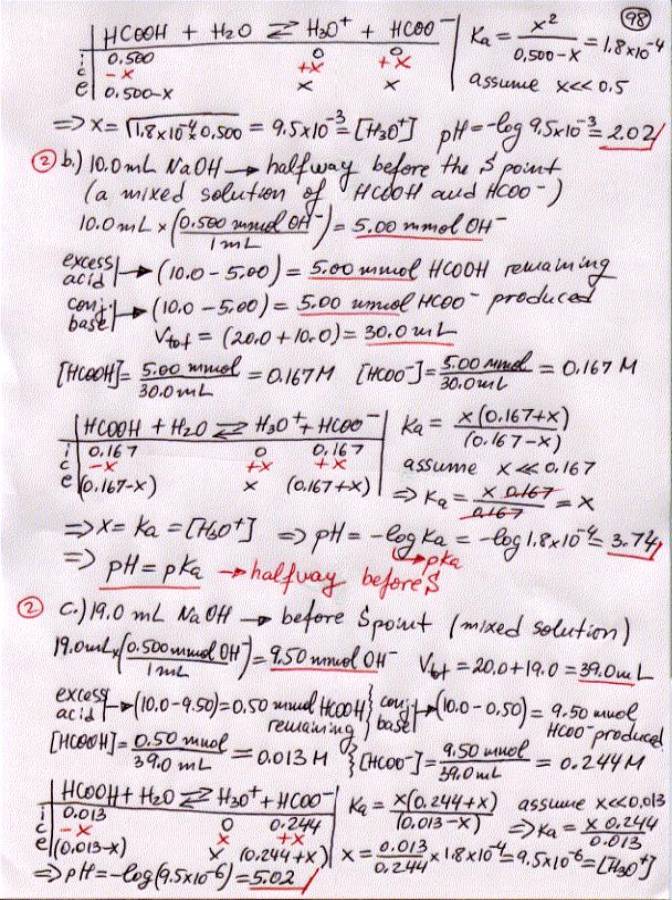 98
HCOOH + H2O ⇌ H3O+ + HCOO-
Ka = x²/(0.500-x) = 1.8x10^-4
i 0.500 0 0
c -x +x +x
e 0.500-x x x
assume x<<0.5
=> x = √(1.8x10^-4 x 0.500) = 9.5x10^-3 = [H3O+] pH = -log 9.5x10^-3 = 2.02
② b.) 10.0 mL NaOH → halfway before the S point
(a mixed solution of HCOOH and HCOO-)
10.0 mL x (0.500 mmol OH-/1mL) = 5.00 mmol OH-
excess acid → (10.0-5.00) = 5.00 mmol HCOOH remaining
conj. base → (10.0-5.00) = 5.00 mmol HCOO- produced
Vtot = (20.0+10.0) = 30.0 mL
[HCOOH] = 5.00 mmol/30.0 mL = 0.167M [HCOO-] = 5.00 mmol/30.0mL = 0.167 M
HCOOH + H2O ⇌ H3O+ + HCOO-
Ka = x(0.167+x)/(0.167-x)
i 0.167 0 0.167
c -x +x +x
e (0.167-x) x (0.167+x)
assume x<<0.167
=> Ka = x 0.167/0.167 = x
=> x = Ka = [H3O+] => pH = -log Ka = -log 1.8x10^-4 = 3.74
→ pKa
=> pH = pKa → halfway before S
② c.) 19.0 mL NaOH → before S point (mixed solution)
19.0mL x (0.500 mmol OH-/1mL) = 9.50 mmol OH- Vtot = 20.0+19.0 = 39.0mL
excess acid → (10.0-9.50) = 0.50 mmol HCOOH remaining } conj. base → (10.0-0.50) = 9.50 mmol HCOO- produced
[HCOOH] = 0.50 mmol/39.0 mL = 0.013 M } [HCOO-] = 9.50 mmol/39.0mL = 0.244M
HCOOH + H2O ⇌ H3O+ + HCOO-
Ka = x(0.244+x)/(0.013-x) assume x<<0.013
i 0.013 0 0.244
c -x x +x
=> Ka = x 0.244/0.013
e (0.013-x) x (0.244+x)
x = 0.013/0.244 x 1.8x10^-4 = 9.5x10^-6 = [H3O+]
=> pH = -log(9.5x10^-6) = 5.02